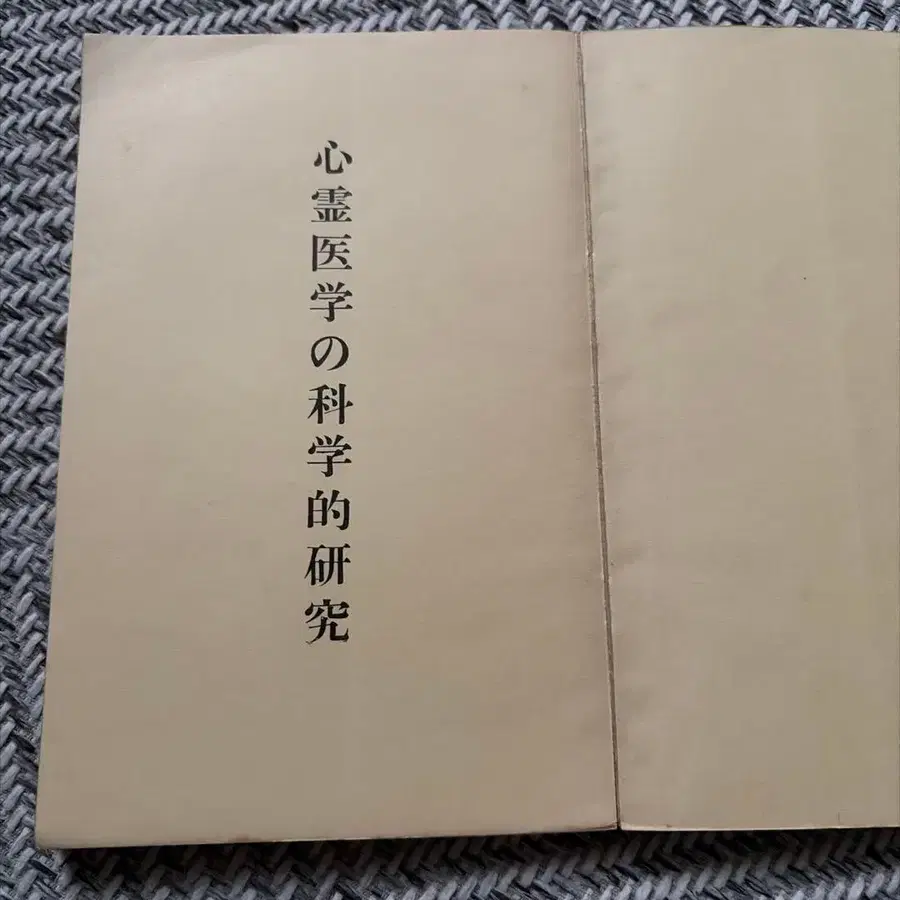 心霊医学の科学的研究